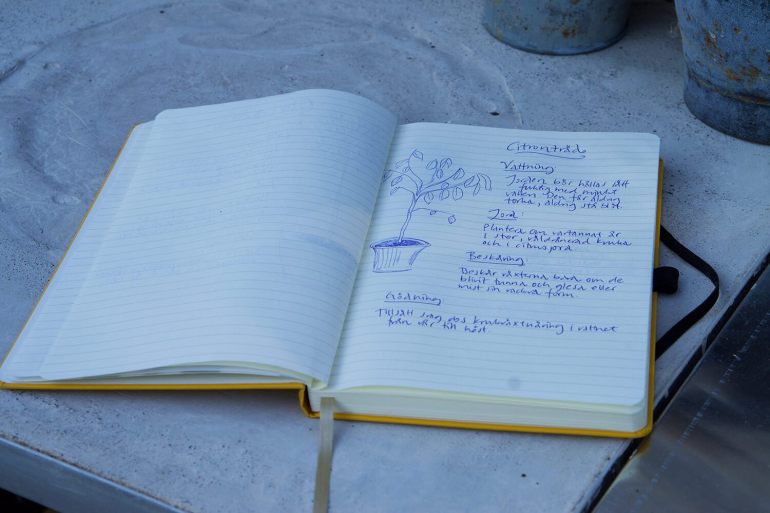 Citronträd
Vattning:
Jorden bör hållas lätt
fuktig med mjukt
vatten. Den får aldrig
torka, aldrig stå blöt.
Jord:
Plantera om vartannat år
i stor, väldränerad kruka
och i citrusjord
Beskäring
Beskär växterna bara om de
blivit tunna och glesa eller
mist sin vackra form
Gödning
Tillsätt krukväxtnäring i vattnet
från vår till höst